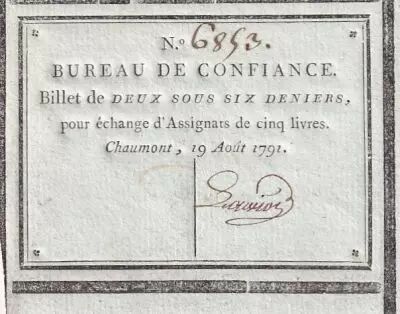 N.º 6853.
BUREAU DE CONFIANCE.
Billet de DEUX SOUS SIX DENIERS,
pour échange d'Assignats de cinq livres.
Chaumont, 19 Août 1791.